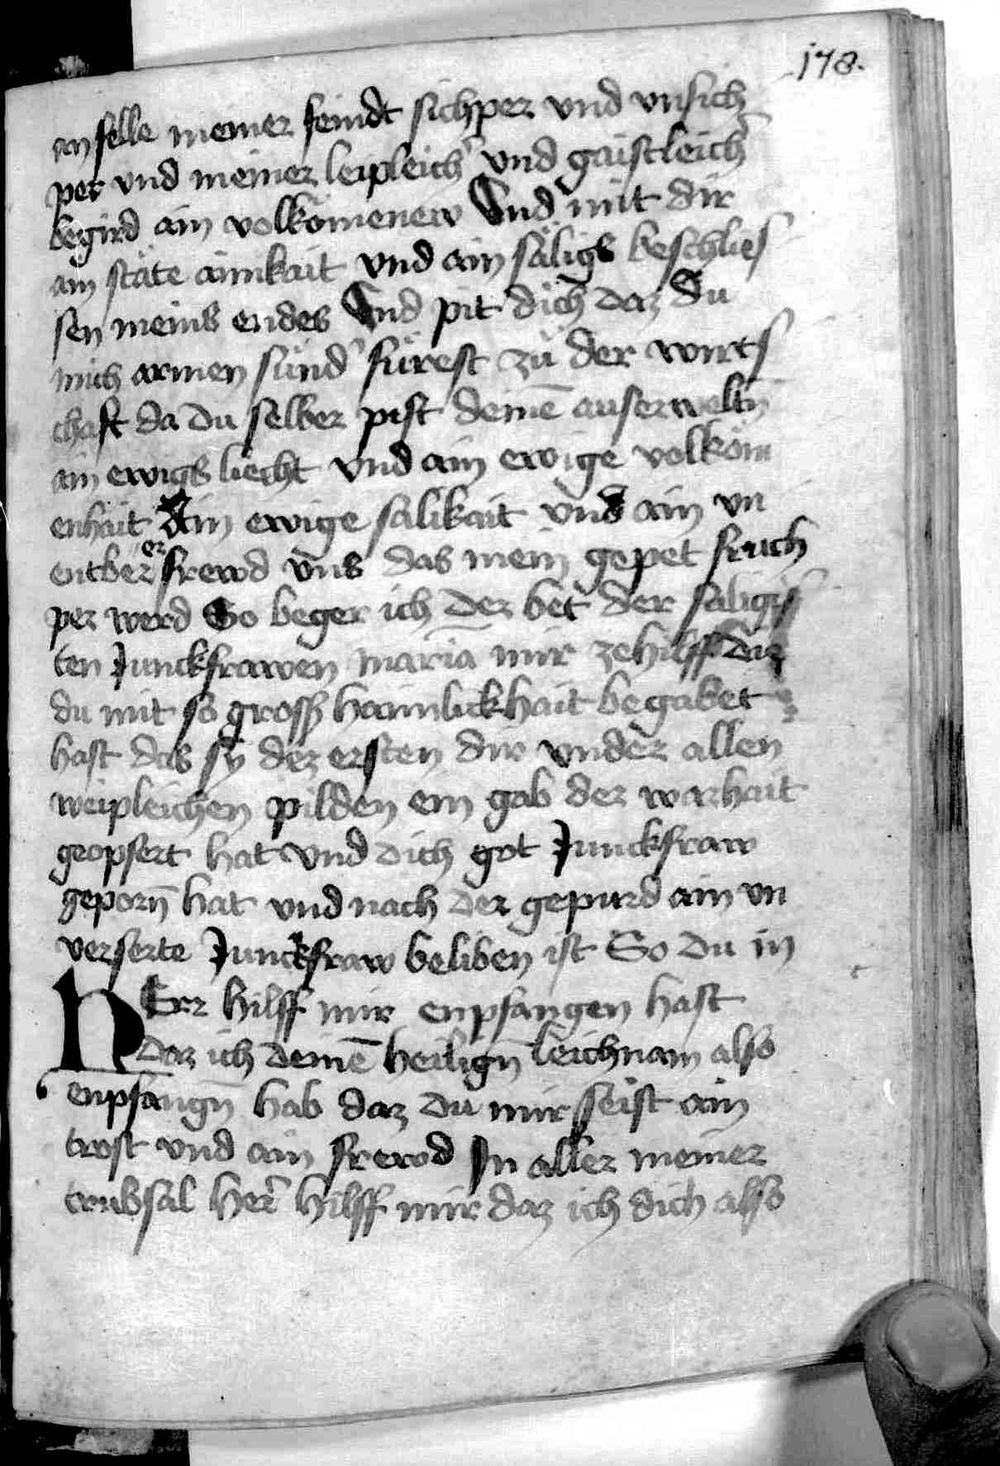 178.
anfelle meiner feindt sichper vnd vnsich
per vnd meiner leipleich' vnd gaistleich'
begird ain volkömenew Vnd mit dir
ain stäte ainikait vnd ain säligs beschlies
sen meins endes Vnd pit dich daz Du
mich armen sünd' fürest zü der wirts
chaft da du selber pist deinē auserweltn̄
ain ewigs liecht vnd ain ewige volköm
enhait Ain ewige salikait vnd ain vn
entberer frewd vns das mein gepet fruch
per werd So beger ich Der bet der saligis
ten Junckfrawen maria mir zehilff die
du mit so gross haimlickhait begabet
hast das sy der ersten dir vnder allen
weipleichen pilden ein gab der warhait
geopfert hat vnd dich got Junckfraw
geporn̄ hat vnd nach der gepurd ain vn
verserte Junckfraw beliben ist So du in
HErr hilff mir enpfangen hast
Daz ich deinē heilign̄ leichnam also
enpfangn̄ hab daz du mir seist ain
trost vnd ain frewd In aller meiner
trubsal her̄ hilff mir daz ich dich also